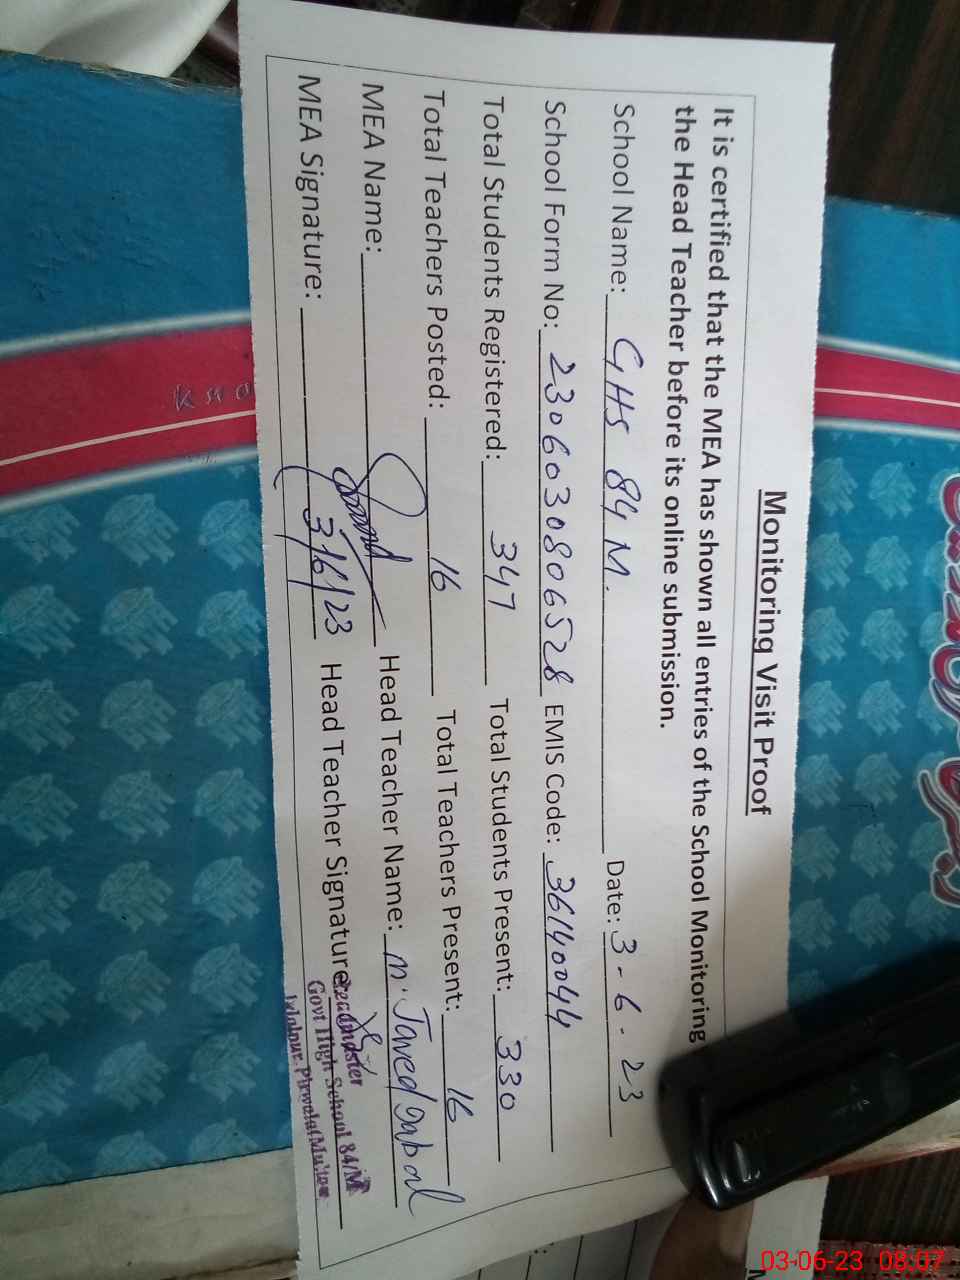 Monitoring Visit Proof
It is certified that the MEA has shown all entries of the School Monitoring
the Head Teacher before its online submission.
School Name: GHS 84 M. Date: 3-6-23
School Form No: 2306030806528 EMIS Code: 36140044
Total Students Registered: 347 Total Students Present: 330
Total Teachers Posted: 16 Total Teachers Present: 16
MEA Name: Head Teacher Name: M. Javed Iqbal
MEA Signature: 3/6/23 Head Teacher Signature:
Headmaster
Govt High School 84/M
03-06-23 08:07